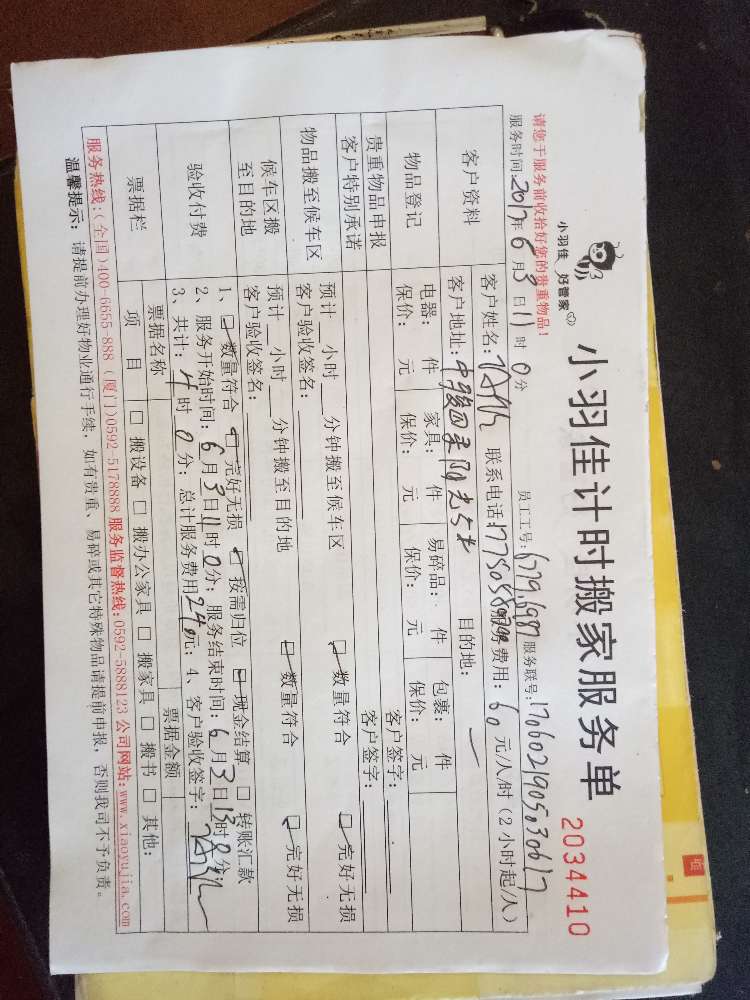 小羽佳 好管家
小羽佳计时搬家服务单
2034410
请您于服务前收拾好您的贵重物品！
员工工号: 679.6987 服务联号: 1706021905030617
服务时间: 2017年 6 月 3 日 11 时 0 分
客户资料
客户姓名: 联系电话: 服务费用: 60 元/人/时（2小时起/人）
客户地址: 目的地:
物品登记
电器: 件 家具: 件 易碎品: 件 包裹: 件
保价: 元 保价: 元 保价: 元 保价: 元
贵重物品申报
客户签字:
客户特别承诺
客户签字:
物品搬至候车区
预计 小时 分钟搬至候车区 ☑ 数量符合 ☑ 完好无损
客户验收签名:
候车区搬至目的地
预计 小时 分钟搬至目的地 ☑ 数量符合 ☑ 完好无损
客户验收签名:
验收付费
1、☑ 数量符合 ☑ 完好无损 ☑ 按需归位 ☑ 现金结算 □ 转账汇款
2、服务开始时间: 6 月 3 日 11 时 0 分; 服务结束时间: 6 月 3 日 13 时 0 分;
3、共计: 4 时 0 分; 总计服务费用 240 元; 4、客户验收签字:
票据栏
票据名称 票据金额
项 目 □ 搬设备 □ 搬办公家具 □ 搬家具 □ 搬书 □ 其他:
服务热线:(全国)400-6655-888 (厦门)0592-5178888 服务监督热线:0592-5888123 公司网站:www.xiaoyujia.com
温馨提示: 请提前办理好物业通行手续，如有贵重、易碎或其它特殊物品请提前申报，否则我司不予负责。